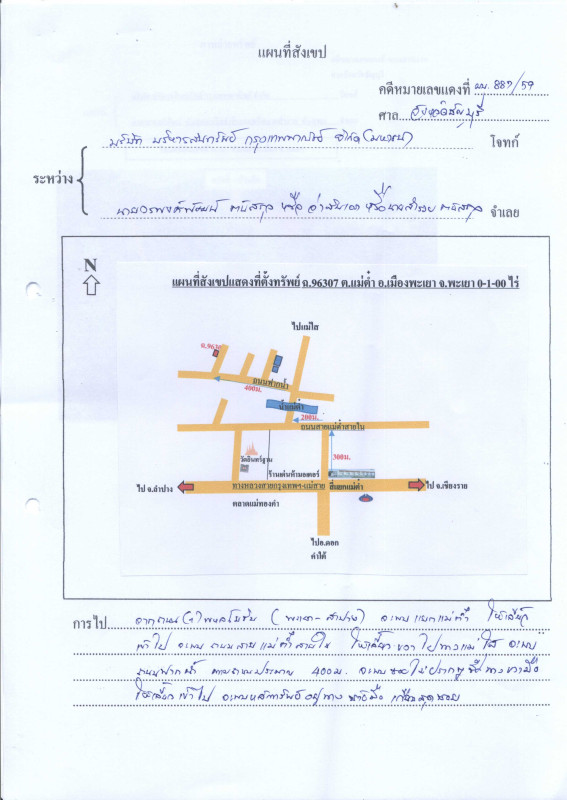 แผนที่สังเขป
คดีหมายเลขแดงที่ ผบ. 887/59
ศาล จังหวัดธัญบุรี
บริษัท บริหารสินทรัพย์ กรุงเทพพาณิชย์ จำกัด (มหาชน) โจทก์
ระหว่าง
จำเลย
N
แผนที่สังเขปแสดงที่ตั้งทรัพย์ ฉ.96307 ต.แม่ต๋ำ อ.เมืองพะเยา จ.พะเยา 0-1-00 ไร่
ไปแม่ใส
ฉ.9630
ถนนฟากน้ำ
400ม.
น้ำแม่ต๋ำ
200ม.
ถนนสายแม่ต๋ำสายใน
300ม.
วัดอินทร์ฐาน
ร้านเด่นห้ามอเตอร์
ไป จ.ลำปาง
ทางหลวงสายกรุงเทพฯ-แม่สาย
สี่แยกแม่ต๋ำ
ไป จ.เชียงราย
ตลาดแม่ทองคำ
ไปอ.ดอก
คำใต้
การไป จากถนน พหลโยธิน (พะเยา-ลำปาง) จะพบแยกแม่ต๋ำ ให้เลี้ยว
เข้าไป จะพบ ถนนสายแม่ต๋ำสายใน ให้เลี้ยวขวา ไปทางแม่ใส จะพบ
ถนนฟากน้ำ ตามถนนประมาณ 400ม. จะพบซอยไม่ปรากฏชื่อทางขวามือ
ให้เลี้ยวเข้าไป จะพบทรัพย์อยู่ทางซ้ายมือ เกือบสุดซอย